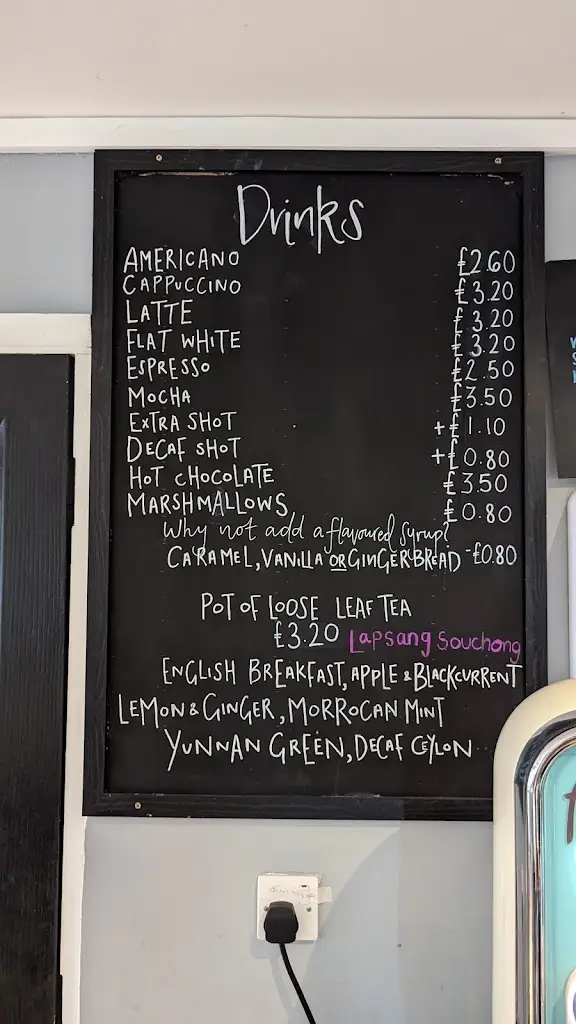 Drinks
AMERICANO £2.60
CAPPUCCINO £3.20
LATTE £3.20
FLAT WHITE £3.20
ESPRESSO £2.50
MOCHA £3.50
EXTRA SHOT +£1.10
DECAF SHOT +£0.80
HOT CHOCOLATE £3.50
MARSHMALLOWS £0.80
Why not add a flavoured syrup?
CARAMEL, VANILLA OR GINGERBREAD -£0.80
POT OF LOOSE LEAF TEA
£3.20 Lapsang Souchong
ENGLISH BREAKFAST, APPLE & BLACKCURRENT
LEMON & GINGER, MORROCAN MINT
YUNNAN GREEN, DECAF CEYLON